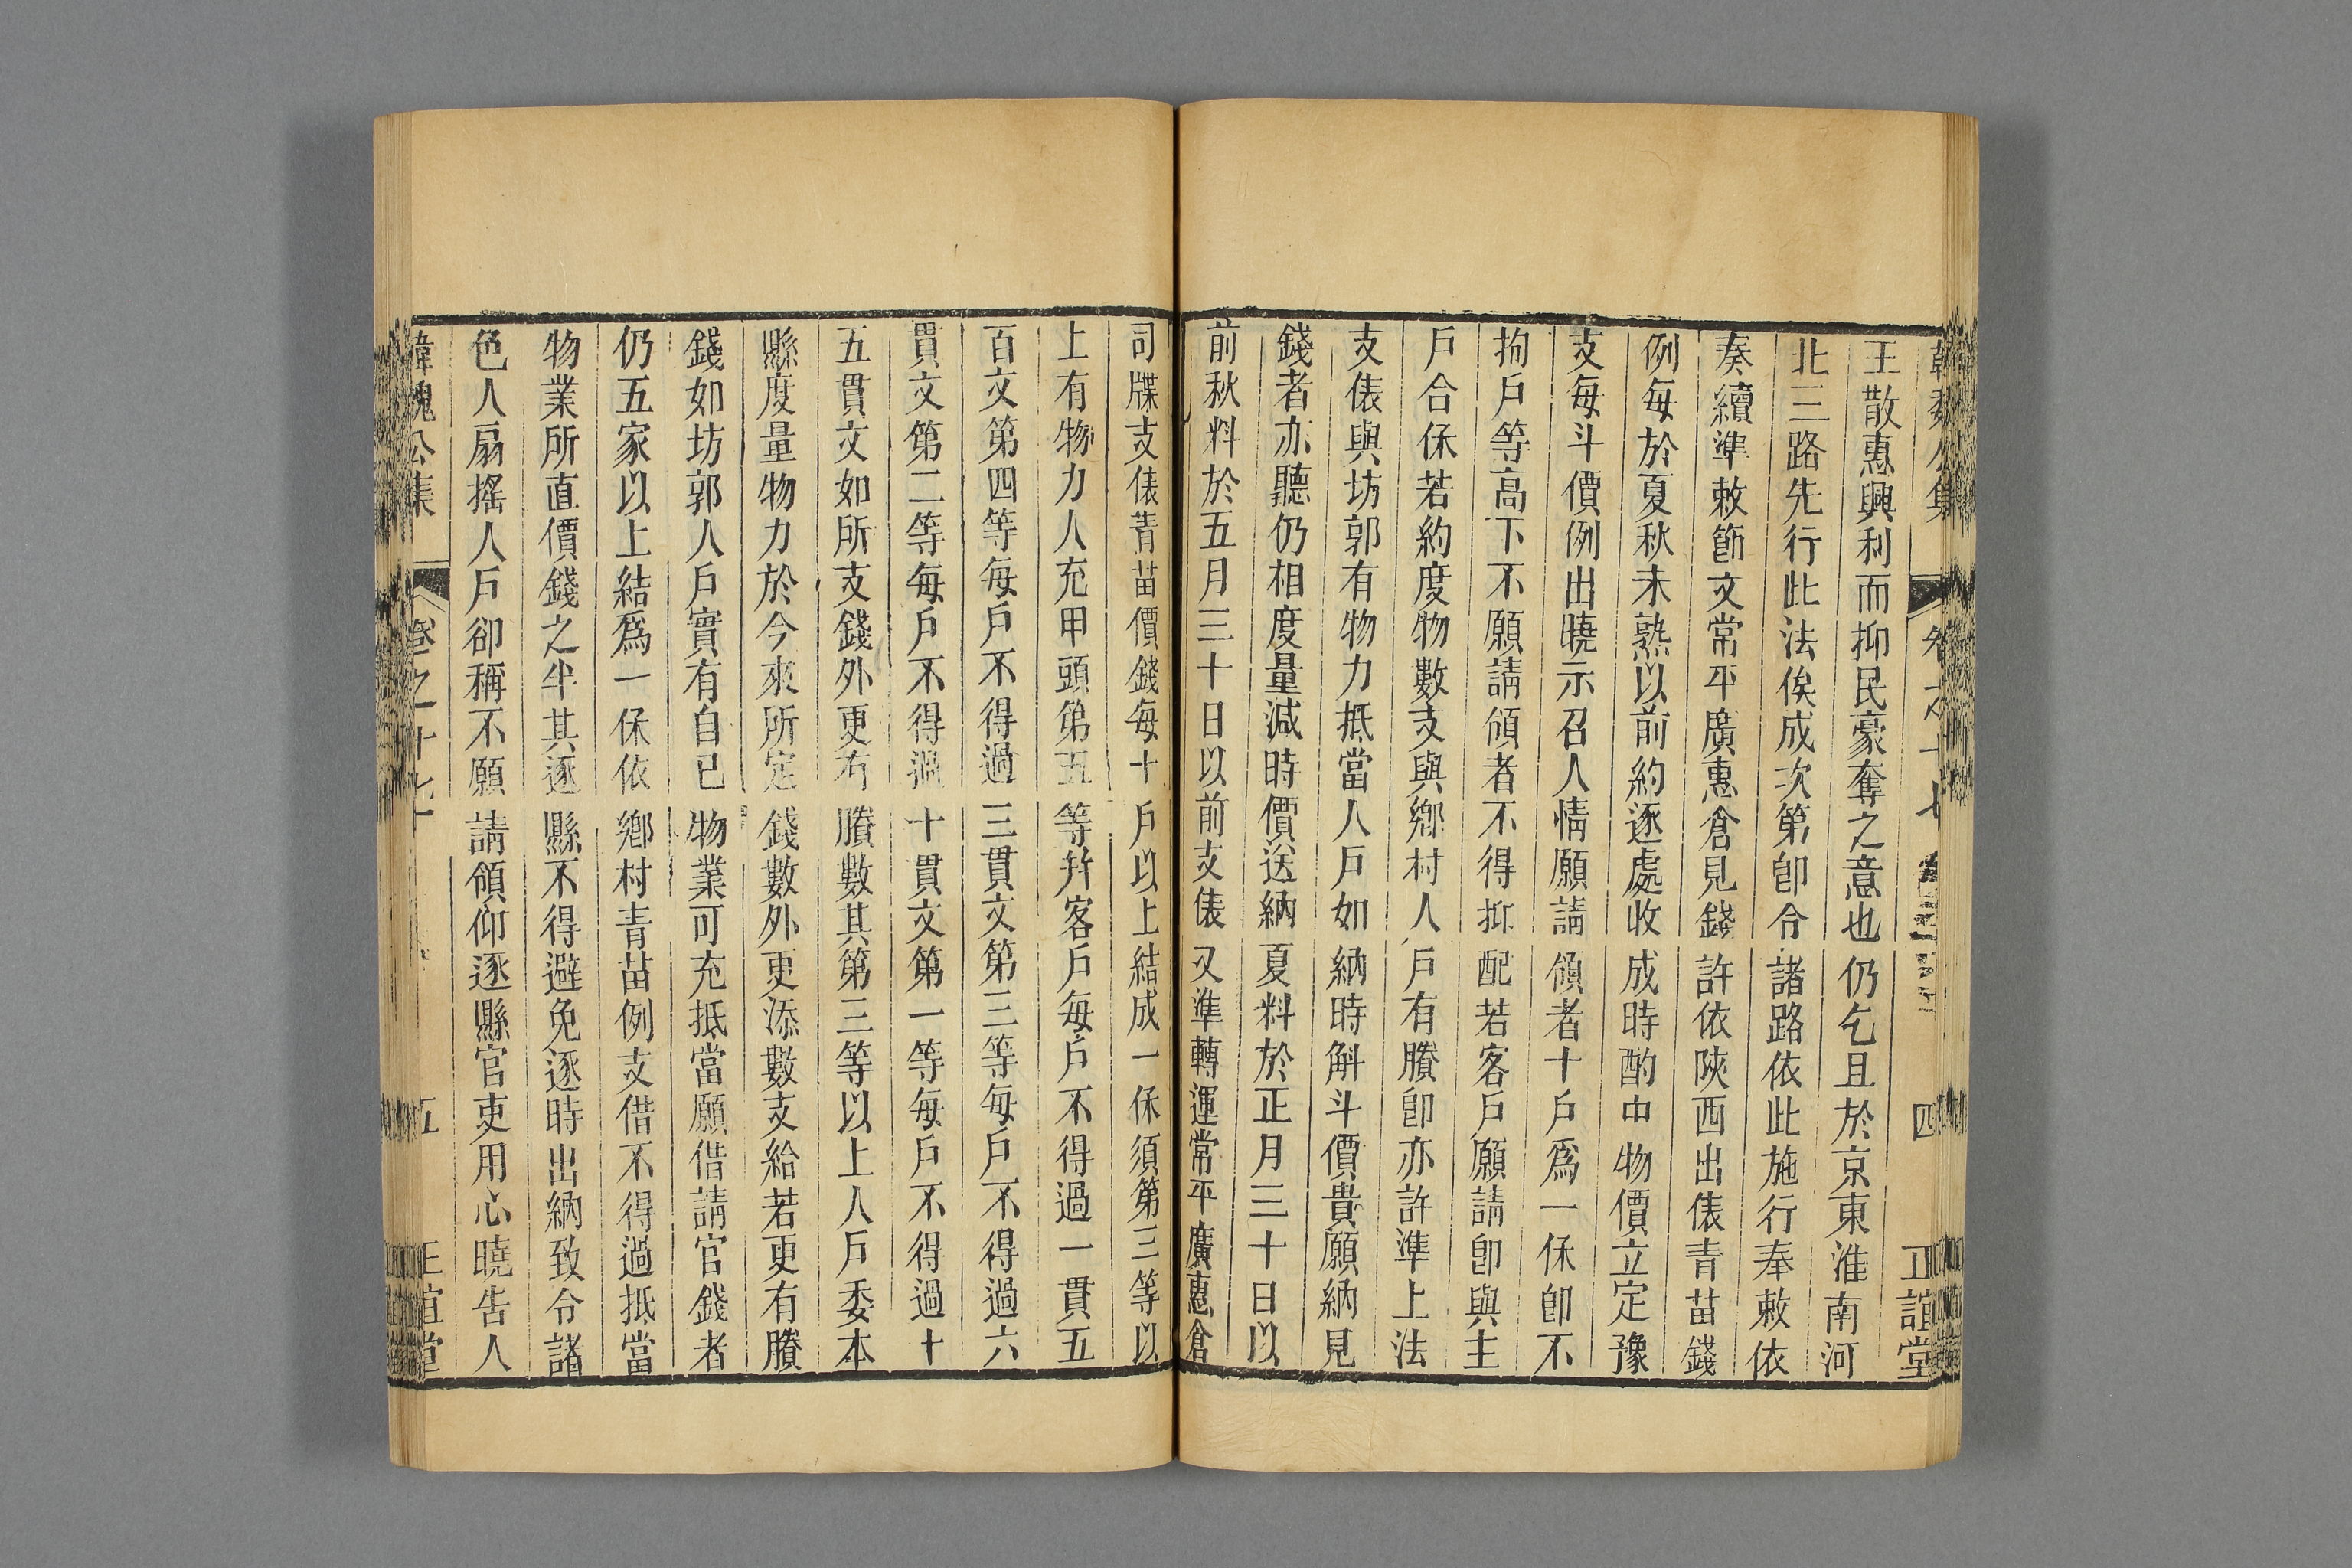 韓魏公集 卷之十七 四 正誼堂
王散惠興利而抑民豪奪之意也仍乞且於京東淮南河
北三路先行此法俟成次第卽令諸路依此施行奉敕依
奏續準敕節文常平廣惠倉見錢許依陝西出俵青苗錢
例每於夏秋未熟以前約逐處收成時酌中物價立定豫
支每斗價例出曉示召人情願請領者十戶爲一保卽不
拘戶等高下不願請領者不得抑配若客戶願請卽與主
戶合保若約度物數支與鄉村人戶有賸卽亦許準上法
支俵與坊郭有物力抵當人戶如納時斛斗價貴願納見
錢者亦聽仍相度量減時價送納夏料於正月三十日以
前秋料於五月三十日以前支俵又準轉運常平廣惠倉
司牒支俵青苗價錢每十戶以上結成一保須第三等以
上有物力人充甲頭第五等幷客戶每戶不得過一貫五
百文第四等每戶不得過三貫文第三等每戶不得過六
貫文第二等每戶不得過十貫文第一等每戶不得過十
五貫文如所支錢外更有賸數其第三等以上人戶委本
縣度量物力於今來所定錢數外更添數支給若更有賸
錢如坊郭人戶實有自已物業可充抵當願借請官錢者
仍五家以上結爲一保依鄉村青苗例支借不得過抵當
物業所直價錢之半其逐縣不得避免逐時出納致令諸
色人扇搖人戶卻稱不願請領仰逐縣官吏用心曉告人
韓魏公集 卷之十七 五 正誼堂